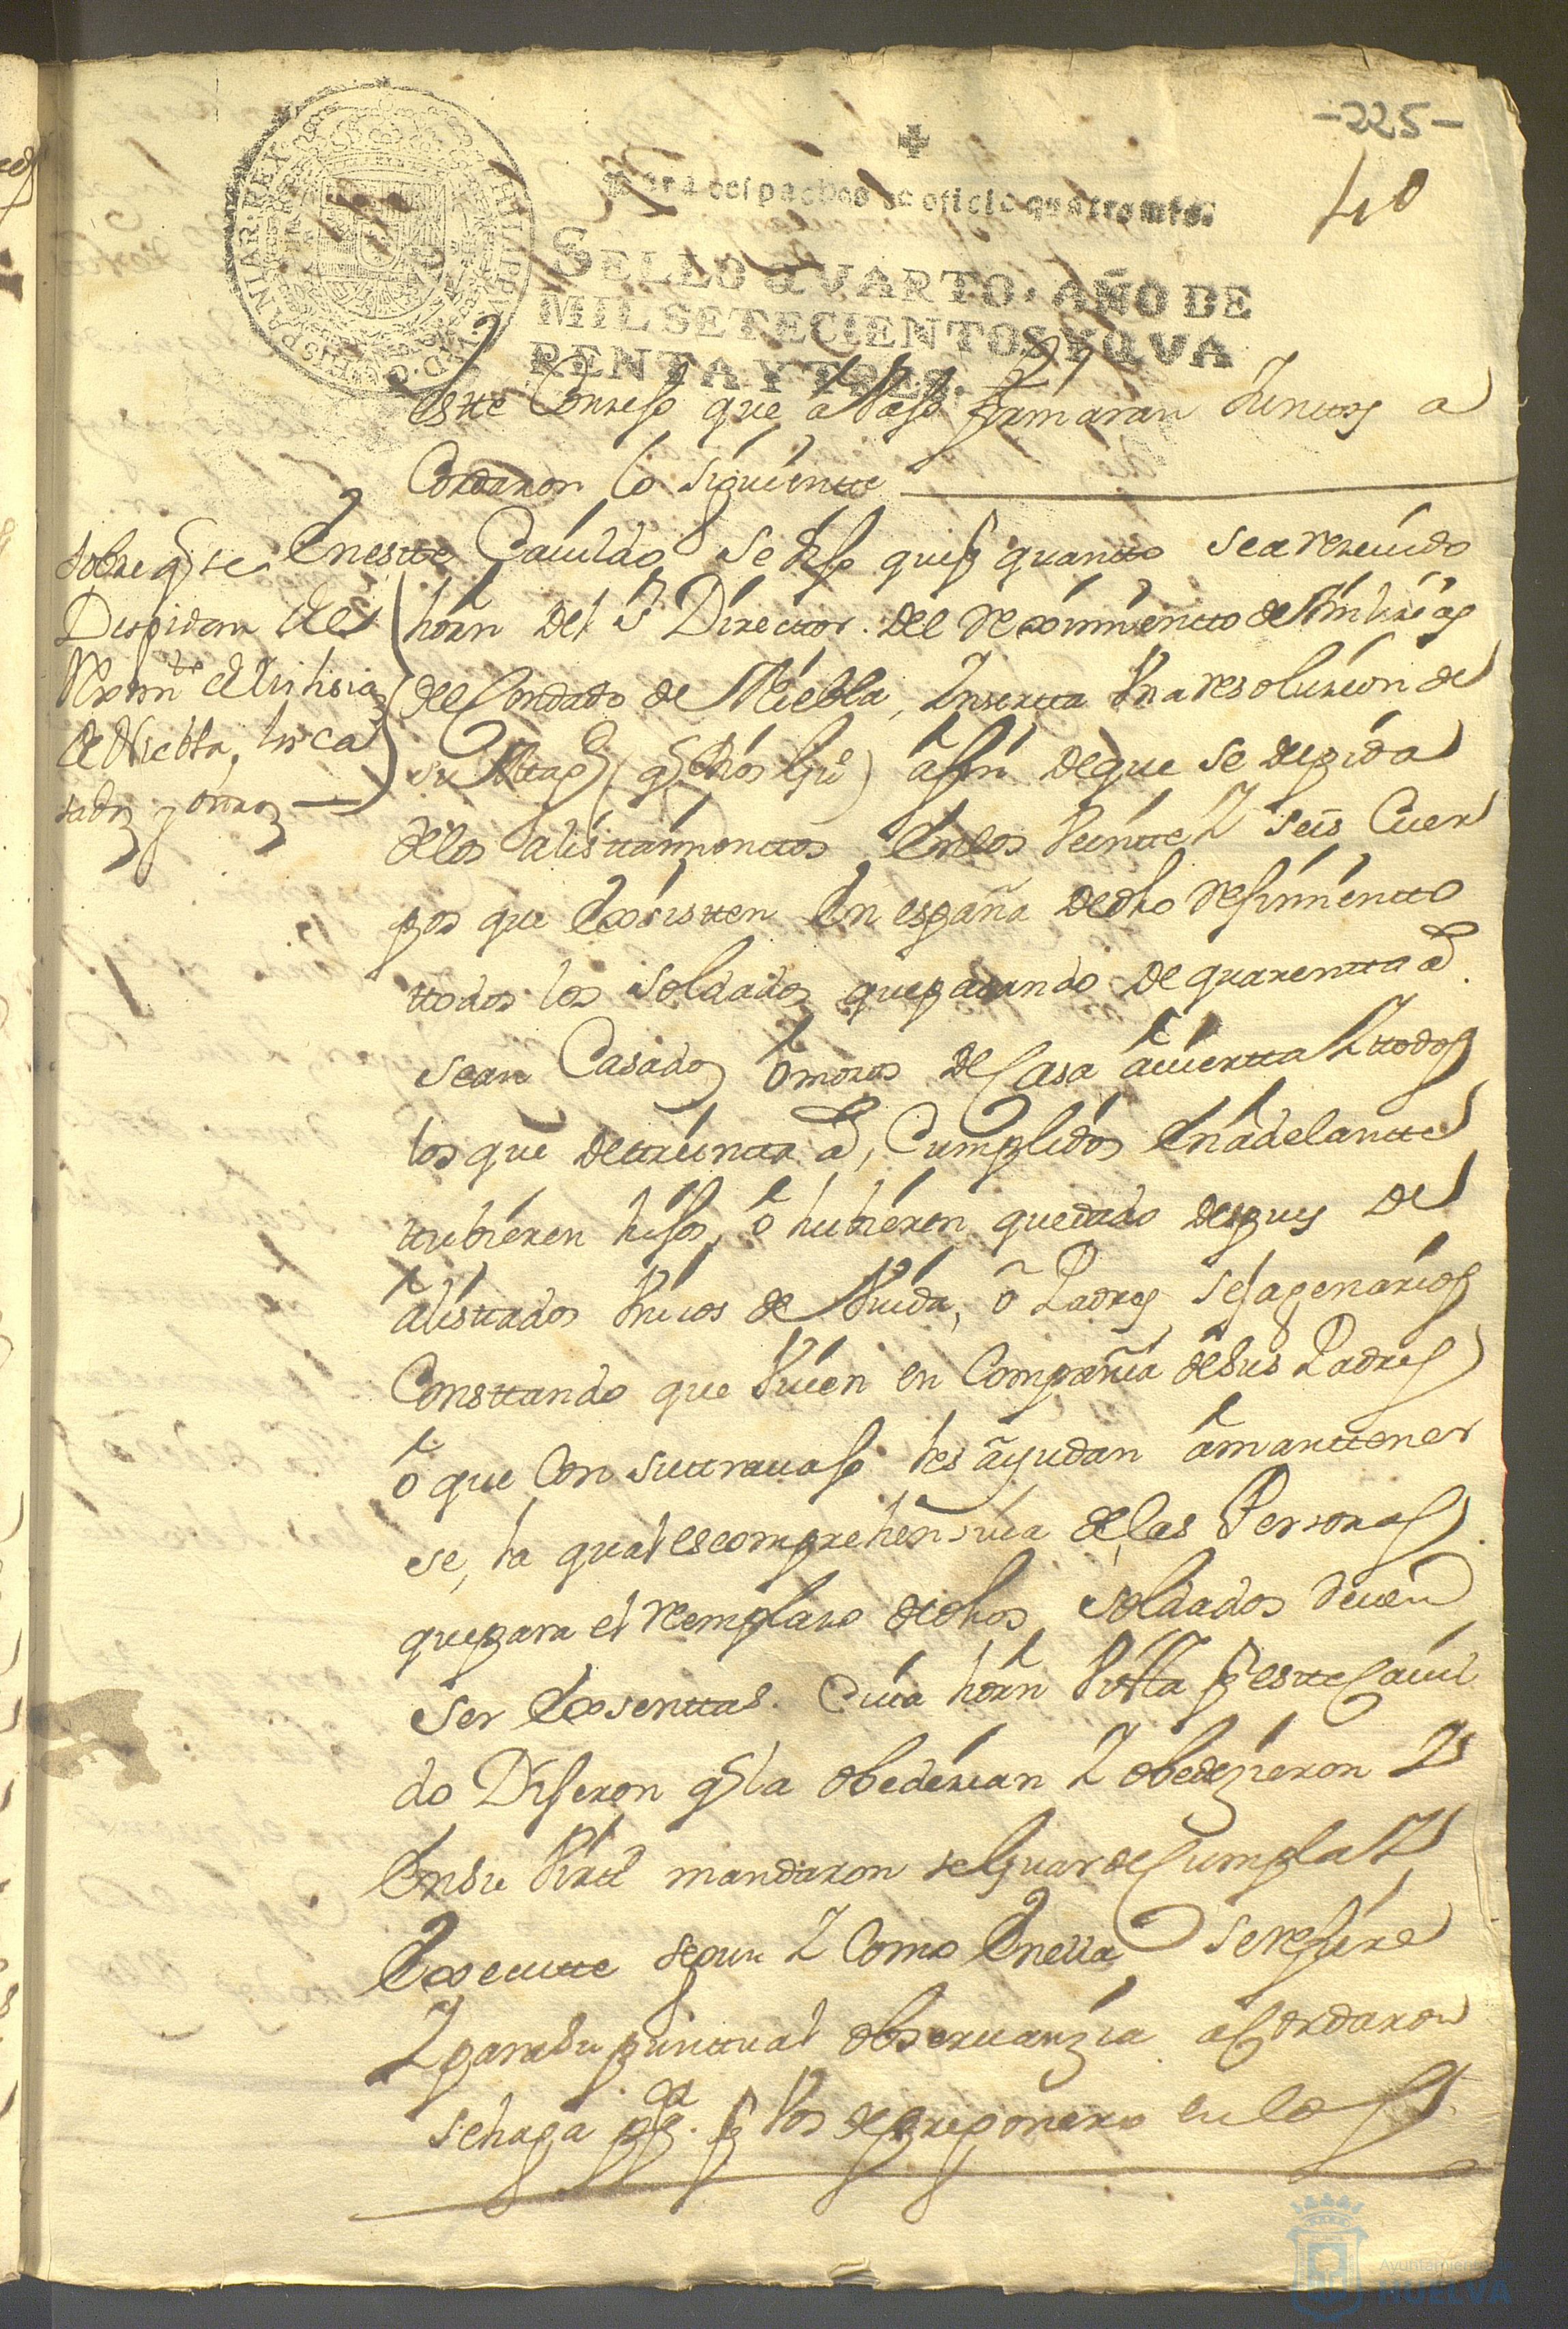 -225-
40
Para despachos de oficio quatro mrs.
SELLO QVARTO, AÑO DE
MIL SETECIENTOS Y QVA
RENTA Y TRES.
PHILIPPVS V D G HISPANIAR REX
este Conzejo que âbajo firmaran Juntos a
Cordaron lo siguiente
sobre q̃ se
Despidan del
Reximto de Milisias
de Niebla, los ca
sados y otros
Enestte Cauildo se dijo quep quantto sea reseuido
horn del Sr Directtor del Reximientto de Milizias
del Condado de Niebla, Insertta Vna resoluzion de
su Magd (q̃ Dios Gue) âfin deque se depida
delos alisttamienttos, Enlos Veintte Y seis Cuer
pos que Exsistten En españa dedho Rejimientto
ttodos los soldados quepasando de quarentta as
sean Casados ômozos de Casa âuiertta Y ttodos
los que dettreintta as, Cumplidos Enâdelantte
ttubieren hijos, ô hubieren quedado despues de
âlisttados Vnicos de Viuda, ô Padres sejagenarios
Consttando que Viuen en Compañia desus Padres
ô que Con suttrauajo les âyudan âmanttener
se, la qual escomprehensiua de las Personas
quepara el remplazo dedhos soldados deuen
ser Exsenttas. Cuia horn Vistta p esttecauil
do Dijeron q̃ la obedezian Y obedezieron Y
Ensu Virtd mandaron seGuarde Cumpla Y
Execuitte segun Y Como Enella serefiere
Y parasu punttual obseruanzia acordaron
sehaga pca. p Vos depregonero en los
Ayuntamiento
HUELVA